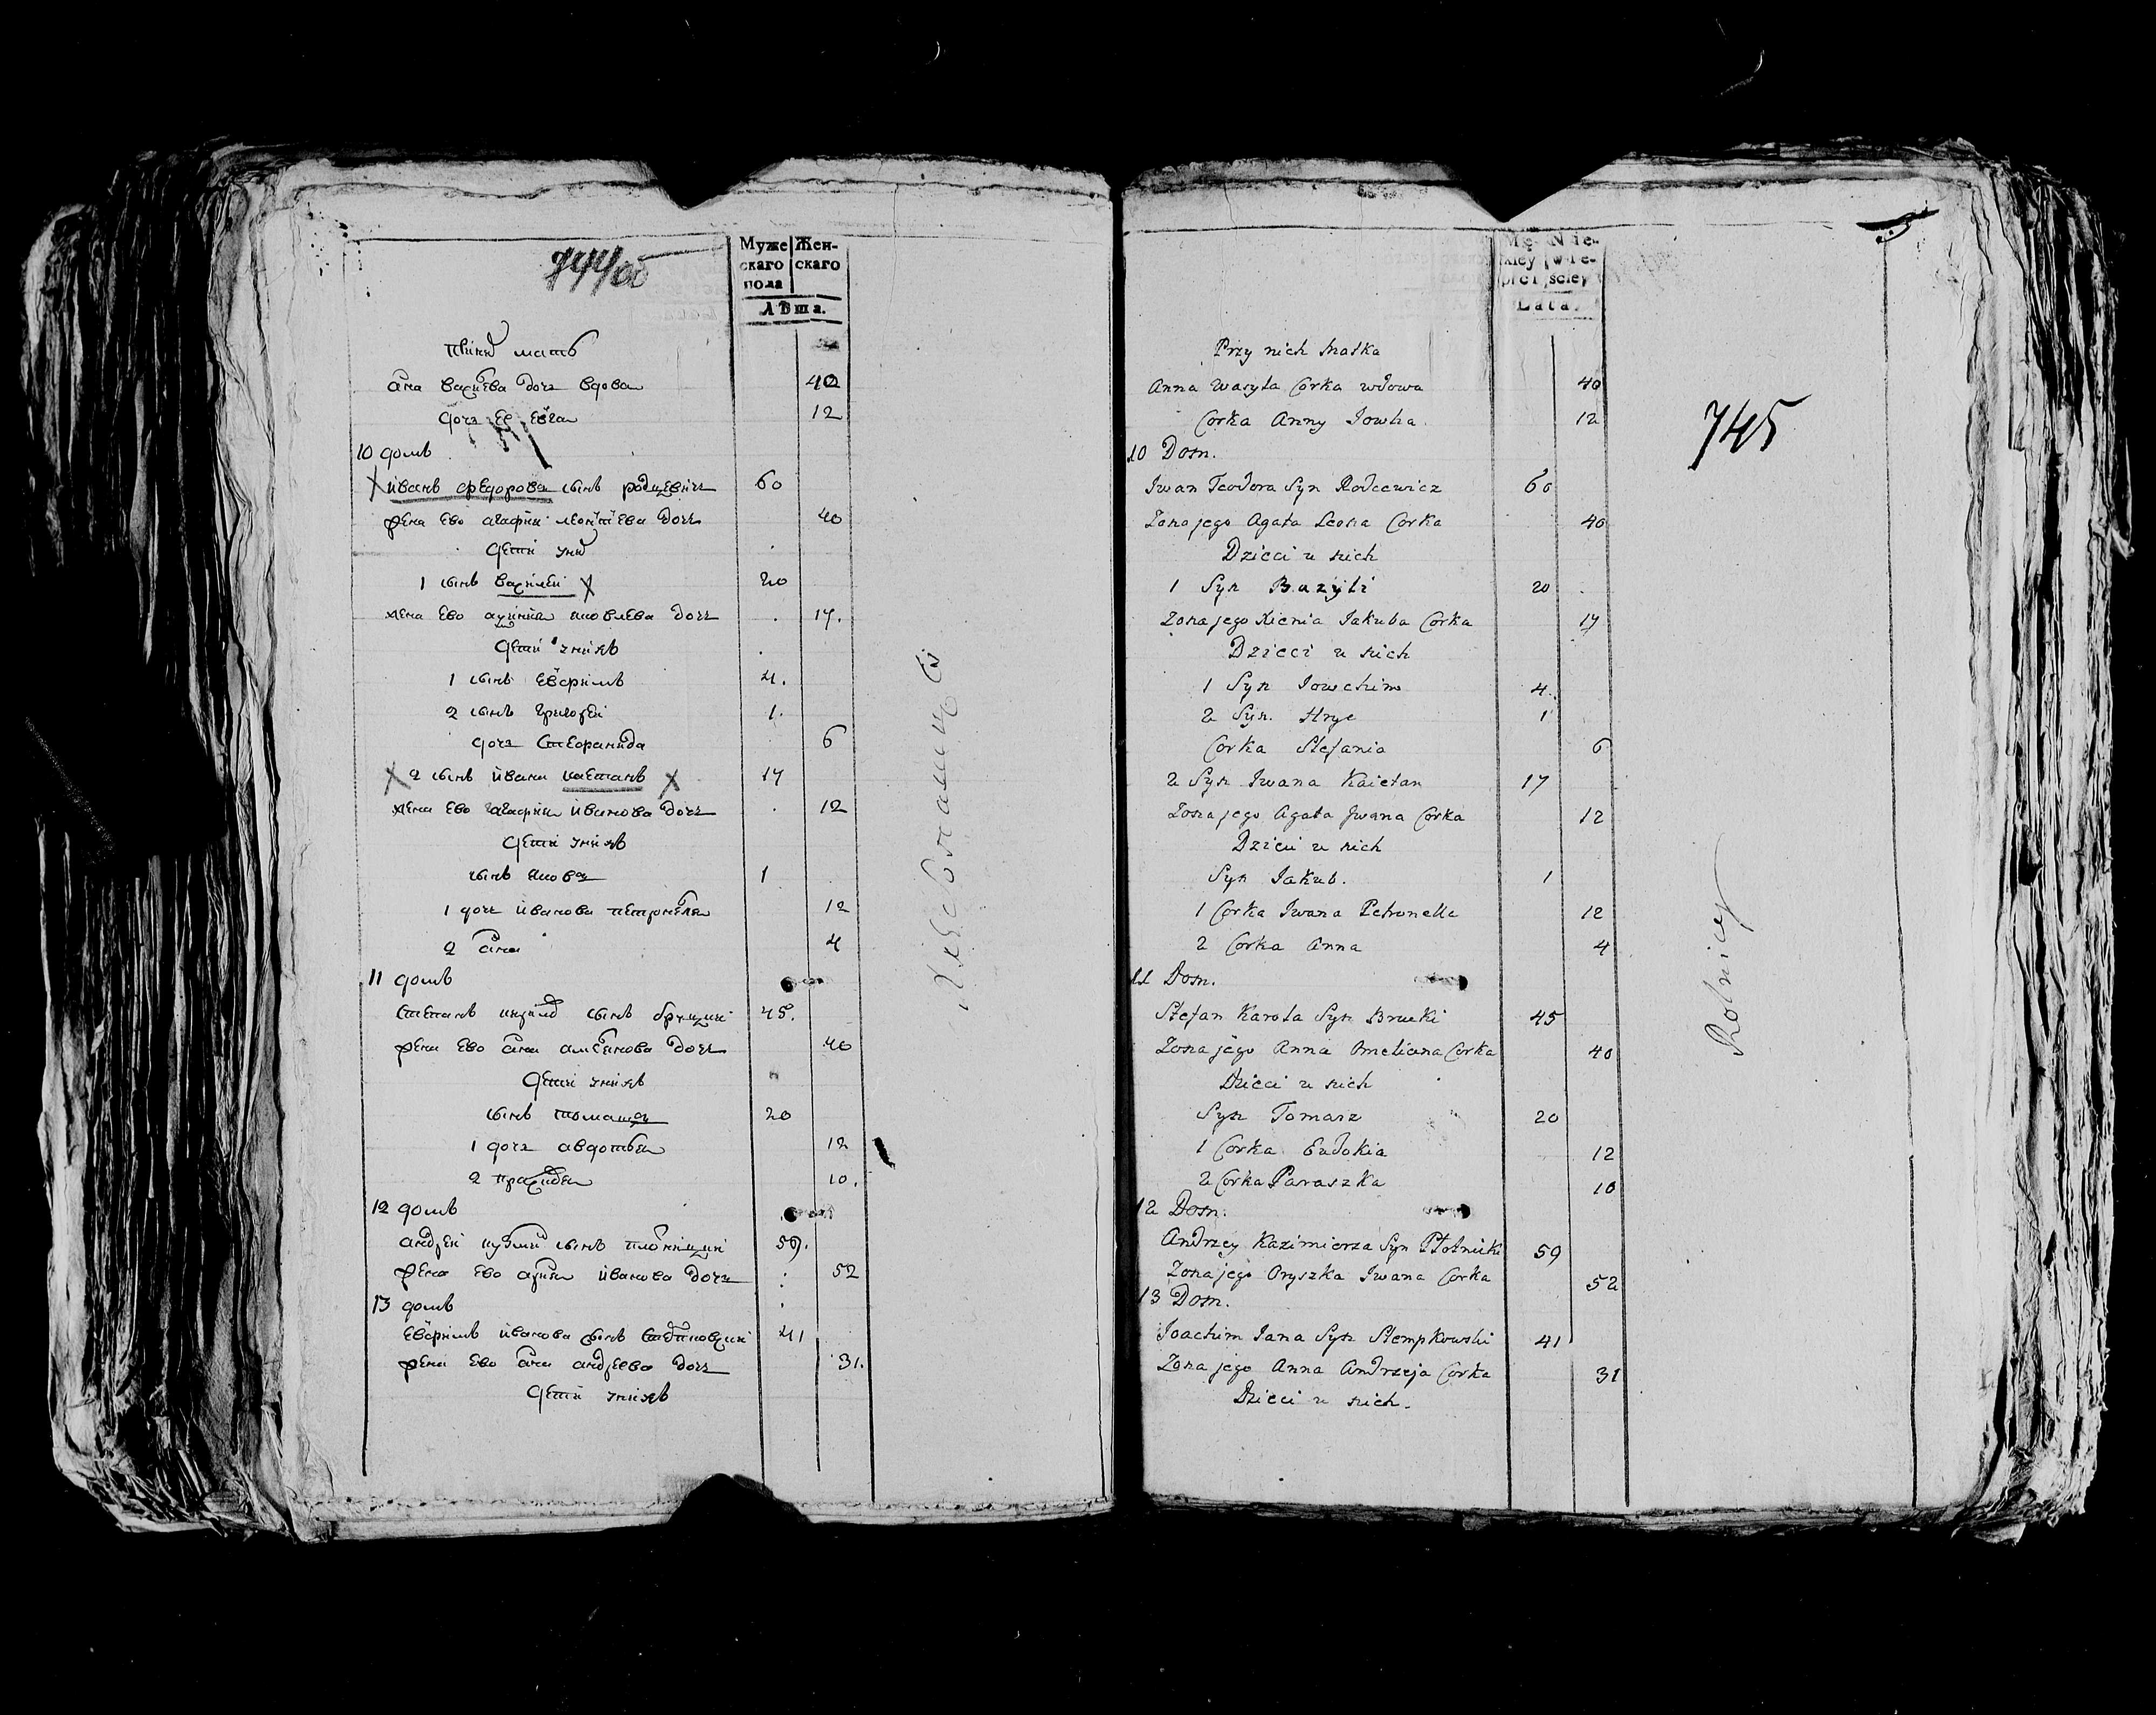 744об
Муже Жен-
скаго скаго
пола
Лѣта.
при ниⷯ мать
анна василева дочь вдова 40
дочь ее евга 12
10 домъ
иванъ федорова сынъ родцевичъ 60
жена ево агафия леонтиева дочь 40
дети у ниⷯ
1 сынъ василеи 20
жена ево аксиния яковлева дочь 17.
дети у нихъ
1 сынъ евфимъ 4.
2 сынъ григореи 1.
дочь степанида 6
2 сынъ ивана каетанъ 17
жена ево агафия иванова дочь 12
дети у нихъ
сынъ яковъ 1
1 дочь иванова петронеля 12
2 анна 4
11 домъ
степанъ сынъ 45.
жена ево анна дочь 40
дети у нихъ
сынъ томашъ 20
1 дочь авдотья 12
2 10.
12 домъ
андреи сынъ 59.
жена ево арина иванова дочь 52
13 домъ
иванова сынъ 41
жена ево анна андреева дочь 31.
дети у нихъ
Хлебопашцы
Mę- Nie-
zkiey wie-
płci ściey
Lata.
745
Przy nich Matka
Anna Wasyla Corka wdowa 40
Corka Anny Jowha 12
10 Dom.
Jwan Teodora Syn Rodcewicz 60
Zona jego Agata Leona Corka 40
Dzieci u nich
1 Syn Bazyli 20
Zona jego Xienia Jakuba Corka 17
Dzieci u nich
1 Syn Jowchim 4.
2 Syn. Hryc 1
Corka Stefania 6
2 Syn Jwana Kaietan 17
Zona jego Agata Jwana Corka 12
Dzieci u nich
Syn Jakub. 1
1 Corka Jwana Petronella 12
2 Corka Anna 4
11 Dom.
Stefan Karola Syn Brucki 45
Zona jego Anna Omeliana Corka 40
Dzieci u nich
Syn Tomasz 20
1 Corka Eudokia 12
2 Corka Paraszka 10
12 Dom.
Andrzey Kazimierza Syn Płotnicki 59
Zona jego Oryszka Jwana Corka 52
13 Dom.
Joachim Jana Syn Stempkowski 41
Zona jego Anna Andrzeja Corka 31
Dzieci u nich.
Rolnicy